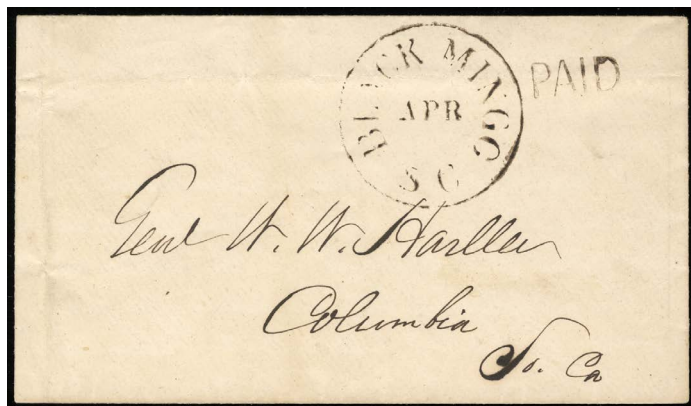 BLACK MINGO
APR
S C
PAID
Genl W. W. Harllee
Columbia
So. Ca